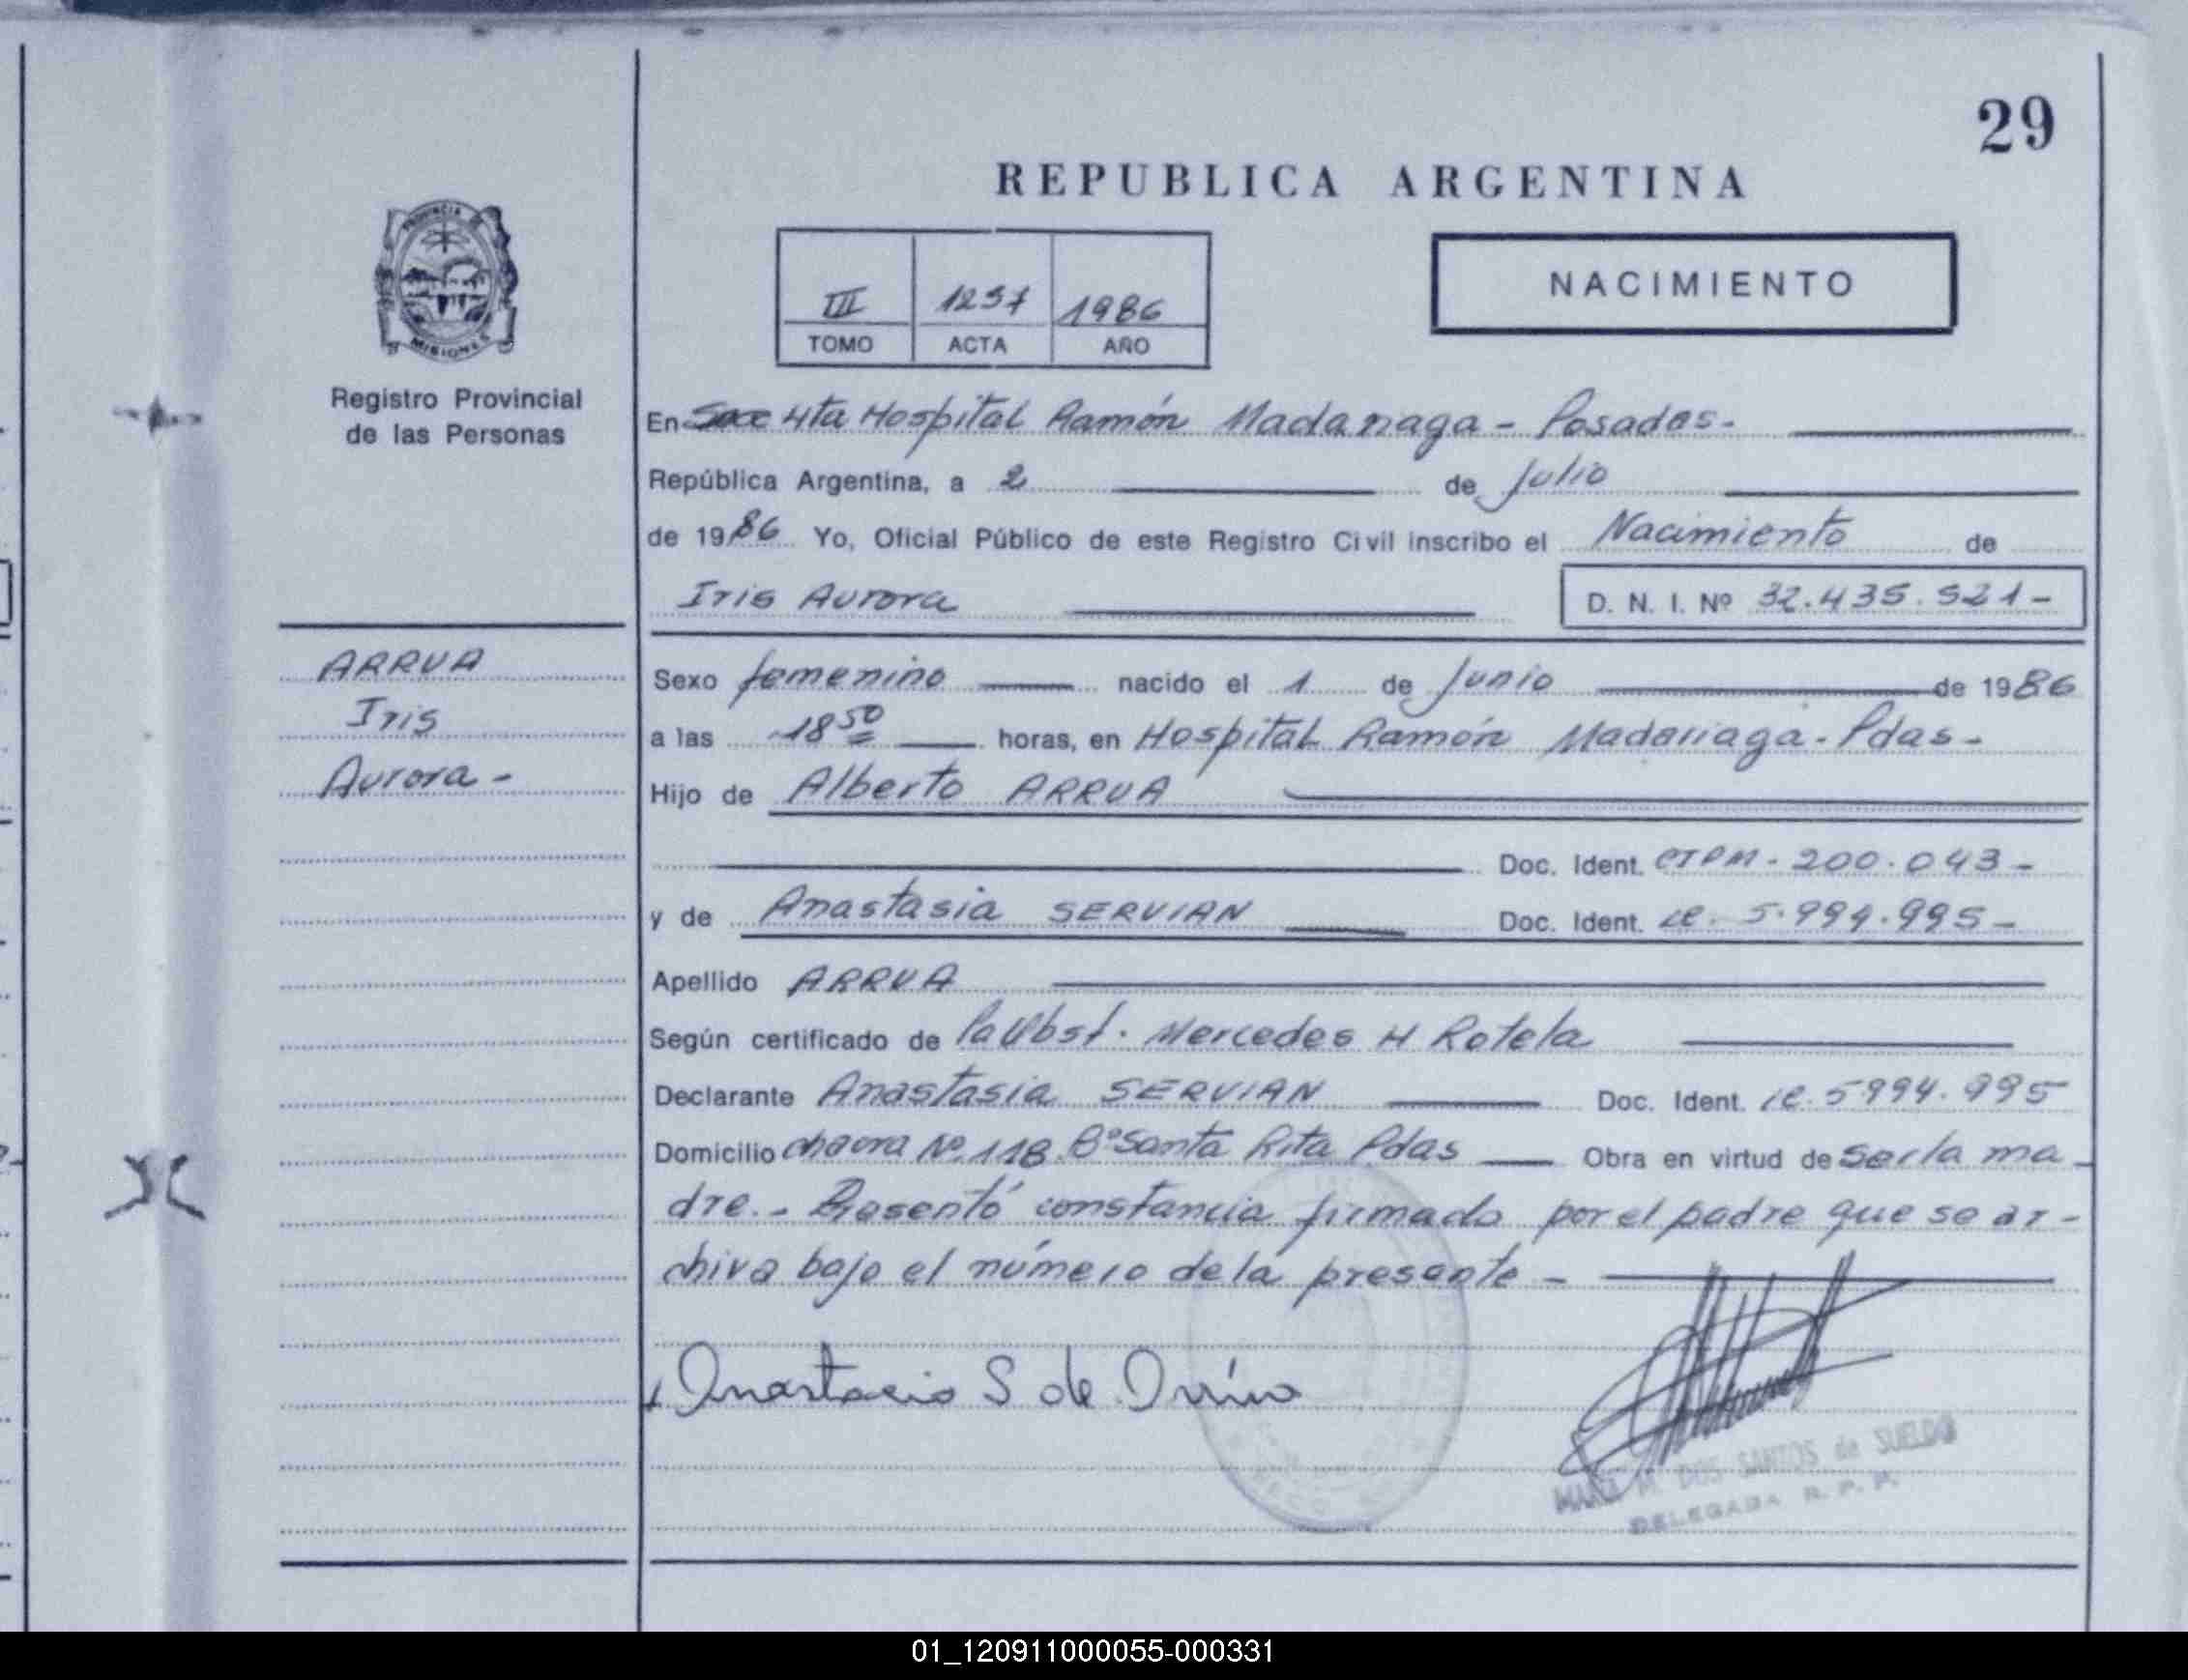 29
REPUBLICA ARGENTINA
PROVINCIA DE
MISIONES
Registro Provincial
de las Personas
III 1237 1986
TOMO ACTA AÑO
NACIMIENTO
En Secc 4ta Hospital Ramón Madariaga - Posadas-
República Argentina, a 2 de Julio
de 1986 Yo, Oficial Público de este Registro Civil inscribo el Nacimiento de
Iris Aurora D. N. I. Nº 32.435.521-
ARRUA
Iris
Aurora -
Sexo femenino nacido el 1 de Junio de 1986
a las 18 50 horas, en Hospital Ramón Madariaga - Pdas-
Hijo de Alberto ARRUA
Doc. Ident. CIPM - 200.043-
y de Anastasia SERVIAN Doc. Ident. LC. 5.994.995-
Apellido ARRUA
Según certificado de la Obst. Mercedes H Rotela
Declarante Anastasia SERVIAN Doc. Ident. lc. 5994.995
Domicilio chacra Nº 118 Bº Santa Rita Pdas Obra en virtud de ser la ma-
dre.- Presentó constancia firmada por el padre que se ar-
chiva bajo el número de la presente -
Anastacia S de
MARIA M. DOS SANTOS de SUELDO
DELEGADA R. P. P.
01_120911000055-000331